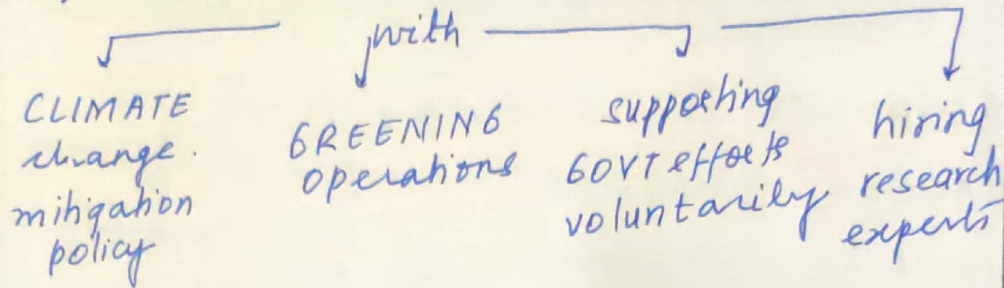 with
CLIMATE
change.
mitigation
policy
GREENING
operations
supporting
GOVT efforts
voluntarily
hiring
research
experts